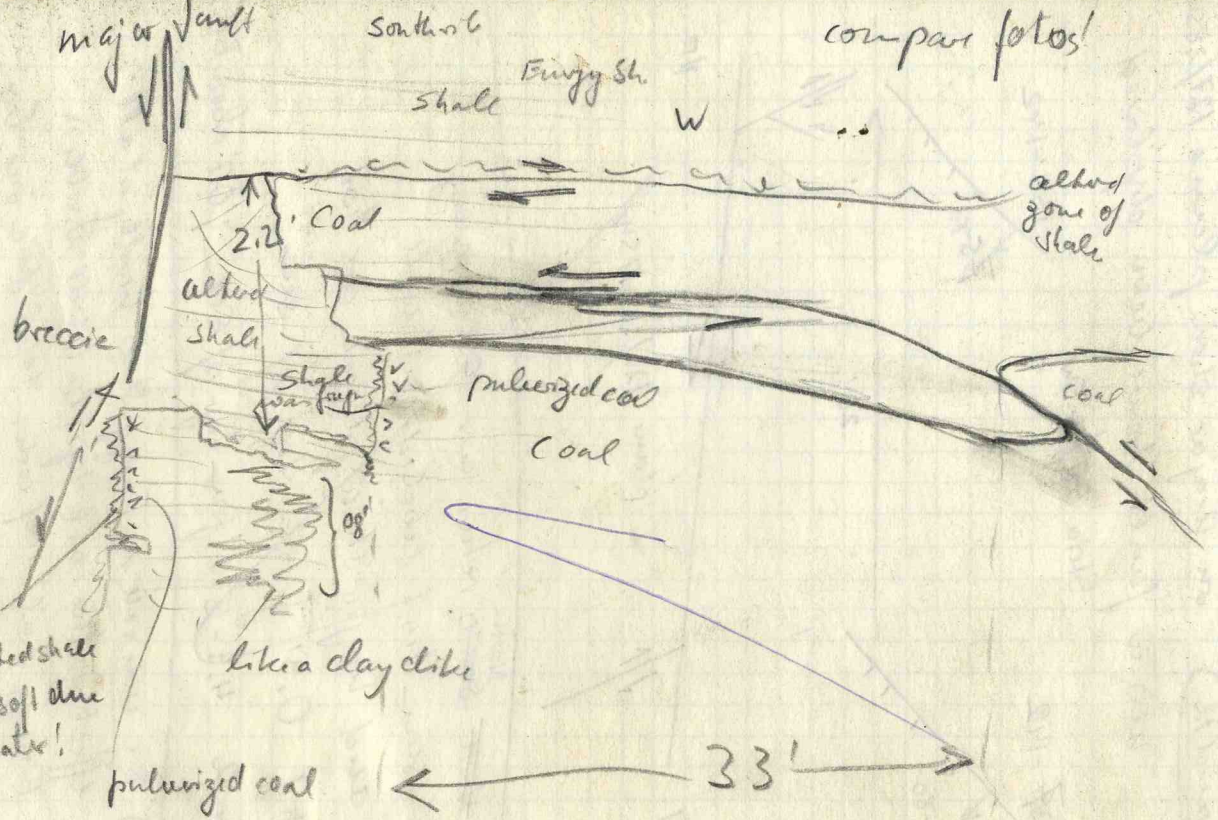 major fault
South rib
compare fotos!
Energy Sh.
Shale
W
altered
zone of
shale
Coal
2.2
altered
shale
breccia
Shale
pulverized coal
Coal
Coal
shale
soft due
like a clay dike
pulverized coal
33'